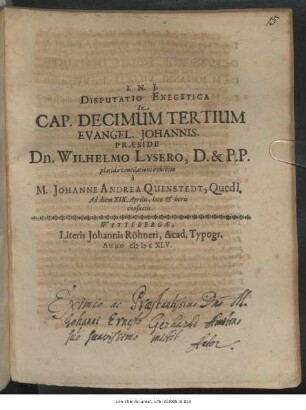 15
I. N. J.
Disputatio Exegetica
In
CAP. DECIMUM TERTIUM
EVANGEL. JOHANNIS.
PRÆSIDE
Dn. WILHELMO LYSERO, D. & P.P.
placidæ ventilationi exhibita
à
M. JOHANNE ANDREA QUENSTEDT, Quedl.
Ad diem XIX. Aprilis, loco & horis
consuetis.
WITTEBERGÆ,
Literis Johannis Röhneri, Acad. Typogr.
ANNO cIɔ Iɔc XLV.
Eximio ac Præstantissimo Dno M.
Johanni Ernesto Gerhardo
suo suavissimo mittit
Autor.